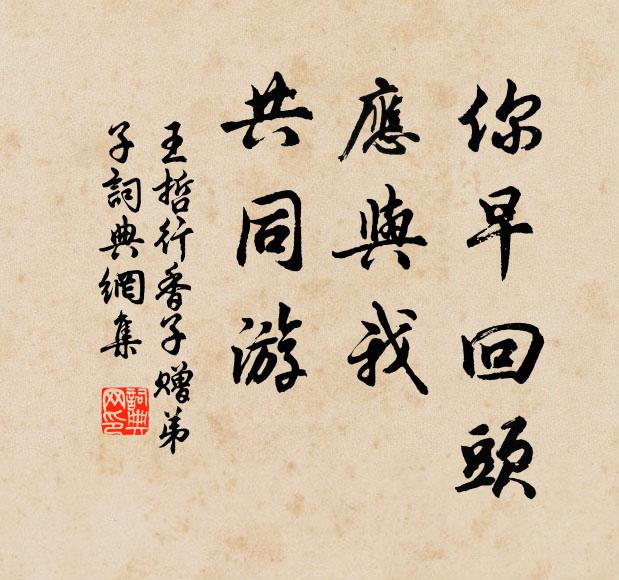 你早回頭
應與我
共同游
王哲行香子贈弟
子詞典網集
詞典
网印